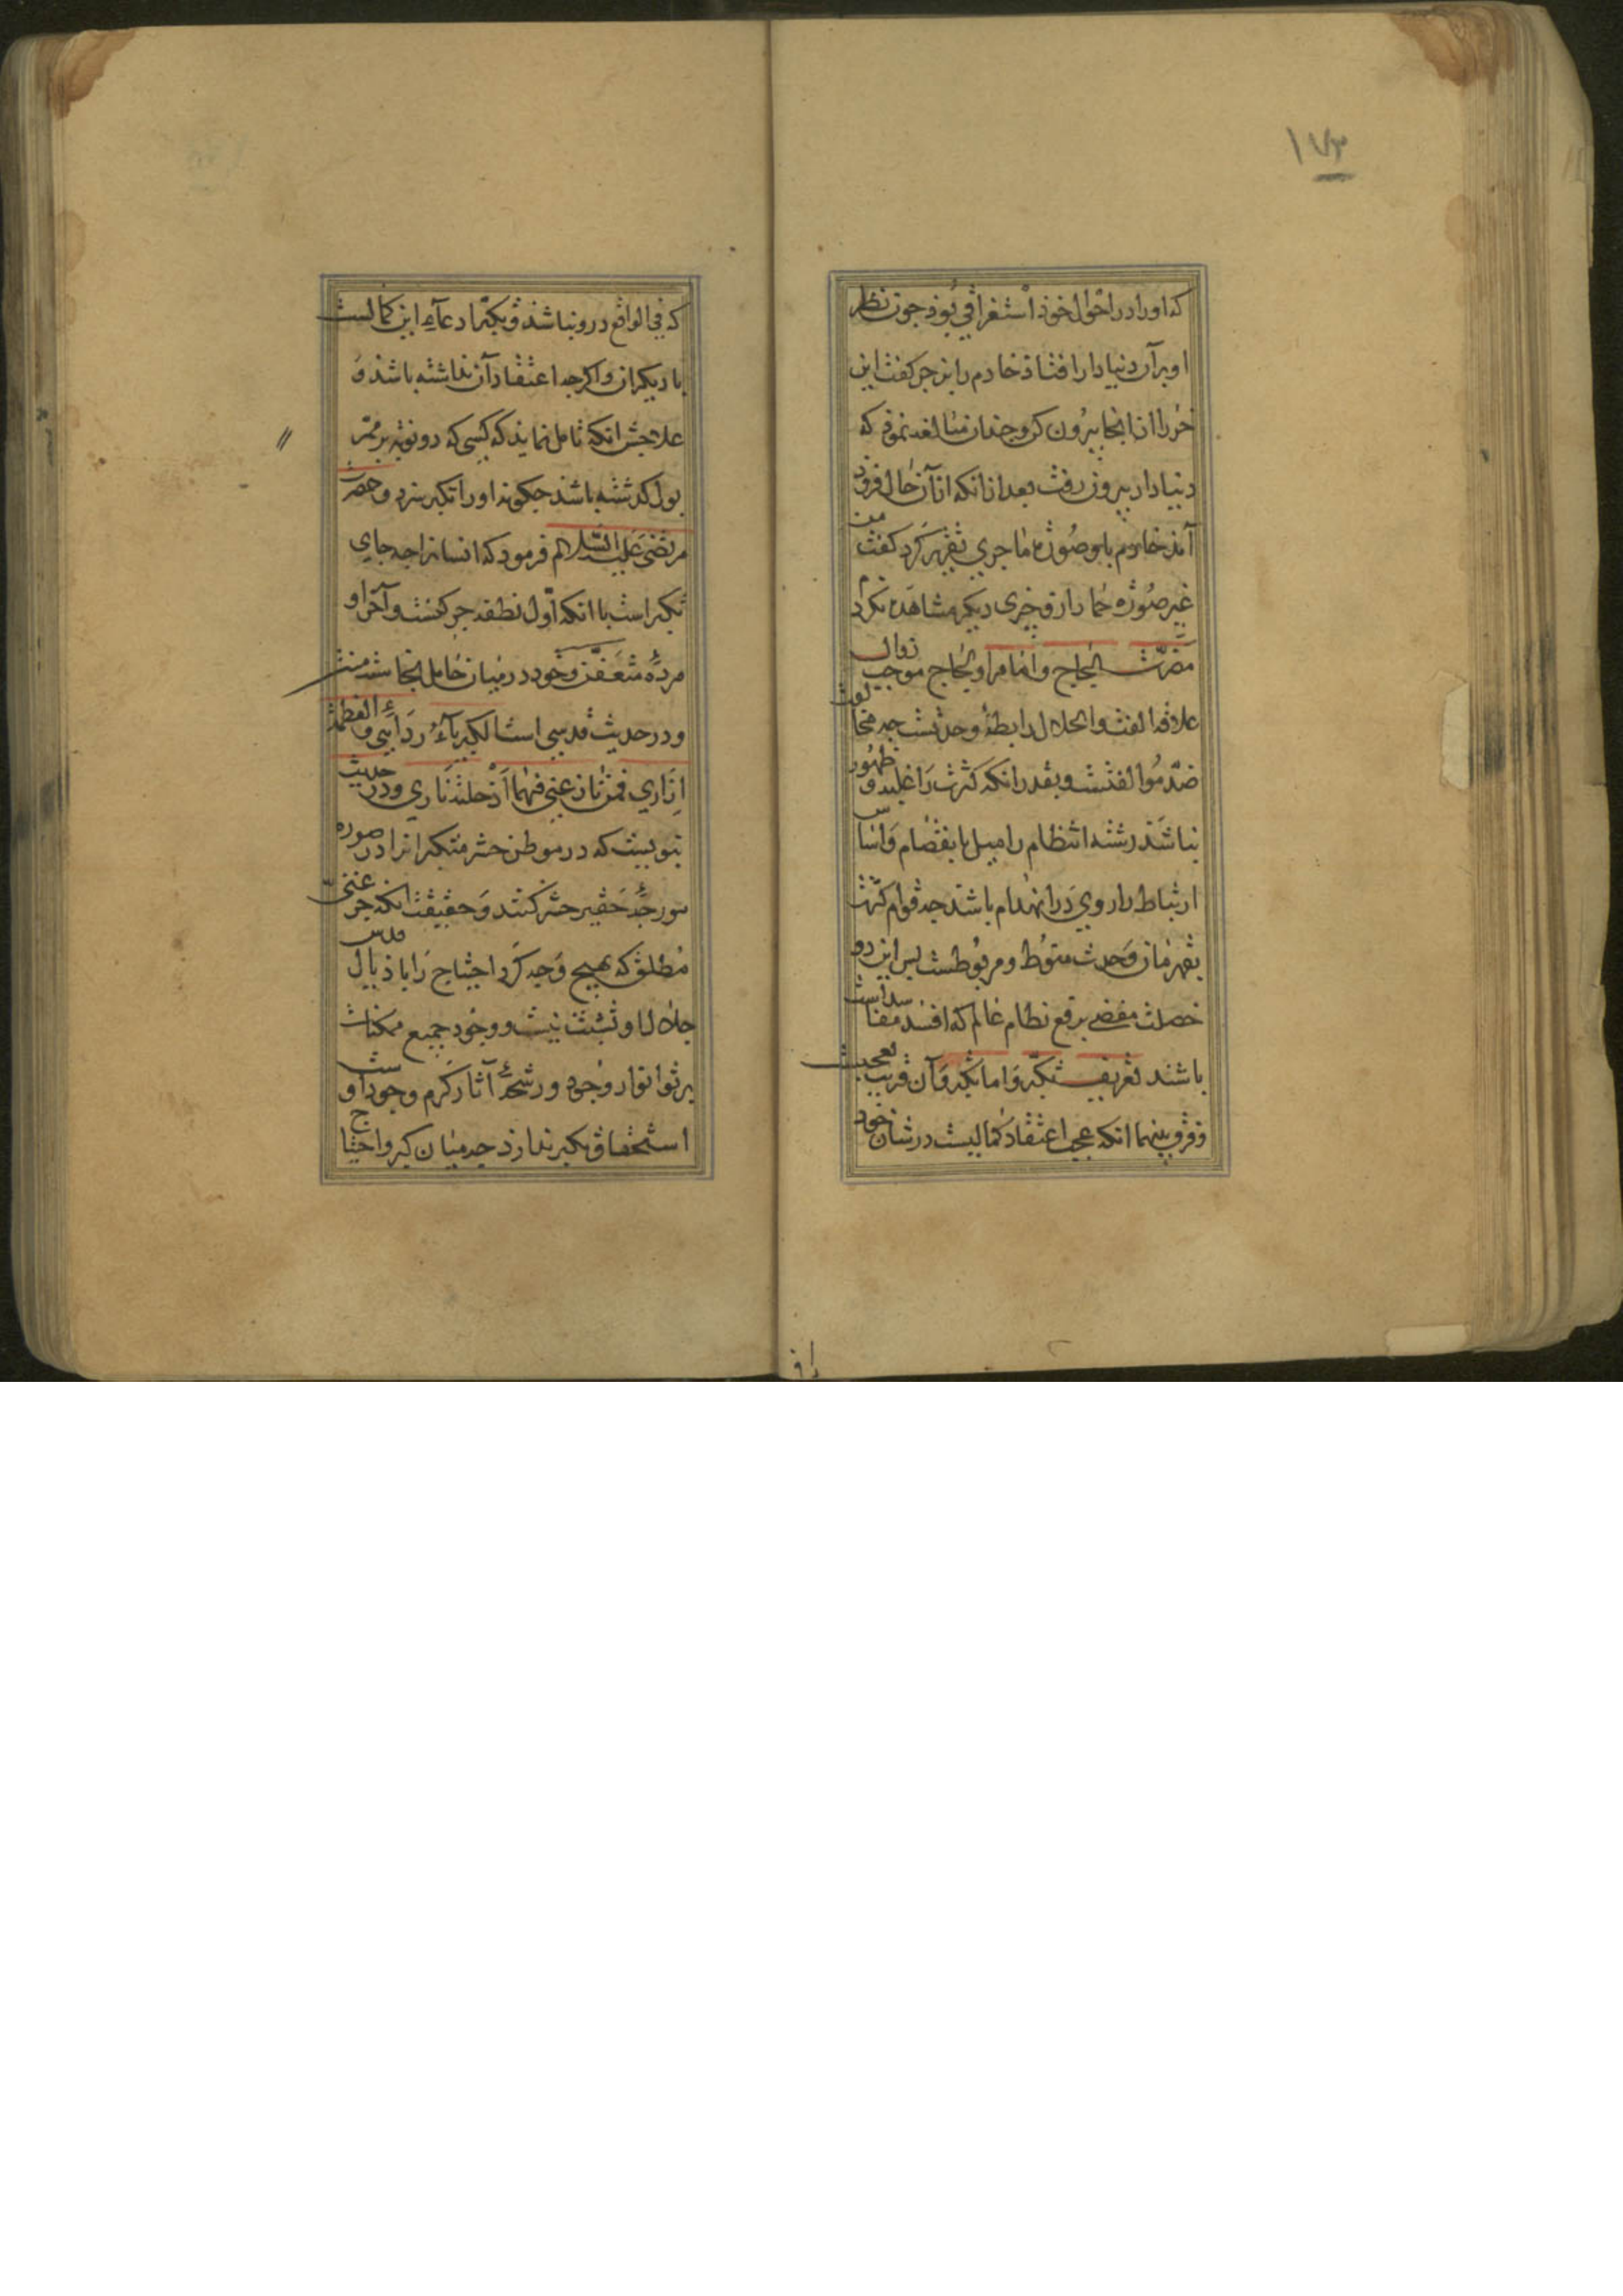 ١٧٣
که اورا در احوال خوذ استغراقی بوذ جون نظر
او برآن دنیادار افتاذ خادم را زجر کفت این
خر را از اینجا بیرون کن و جندان مبالغه نموذ که
دنیادار بیرون رفت بعد از انکه از آن حال فرود
آمذ خادم با وصورة ماجری تقریر کرد کفت من
غیر صورة حمار ازو جیزی دیکر مشاهده نکردم
مضرّت لجاج واما مرا ولجاج موجب زوال
علاقه الفت وانحلال رابطهٔ وحدتست جه مخالفت
ضدّ موالفتست وبقدر انکه کثرت را غلبه و ظهور
نباشذ رشته انتظام را میل بانفصام واساس
ارتباط را روی در انهدام باشذ جه قوام کثرت
بقهرمان وحدت منوط ومربوطست بس این دو
خصلت مفضی برفع نظام عالم که افسد مفاسد است
باشند تعریف تکبّر واما تکبّر وآن قریب بعجبست
وفرق بینهما انکه عجب اعتقاد کمالیست در شان خود
که فی الواقع درو نباشذ وتکبّر ادعآء این کمالست
با دیکران واکرجه اعتقاد آن نداشته باشذ و
علاجش انکه تامل نمایذ که کسی که دو نوبه بر ممرّ
بول کذشته باشذ جکونه اورا تکبر سزد وحضرت
مرتضی علیه السلام فرمود که انسانرا جه جای
تکبر است با انکه اوّل نطفه جرکنست وآخر او
مردهٔ متعفّن وخود درمیان حامل نجاستست
ودر حدیث قدسی است الکبریآء ردایی والعظمة
ازاری فمن نازعنی فیهما ادخلته ناری ودر حدیث
نبویست که در موطن حشر متکبرانرا در صوره
مورجهٔ حقیر حشر کنند وحقیقت انکه جز غنیّ
مطلق که بهیج وجه کرد احتیاج را با ذیال قدس
جلال او تشبّث نیست ووجود جمیع ممکنات
برتو انوار وجود ورشحهٔ آثار کرم وجود اوست
استحقاق تکبر ندارد جه میان کبر واحتیاج